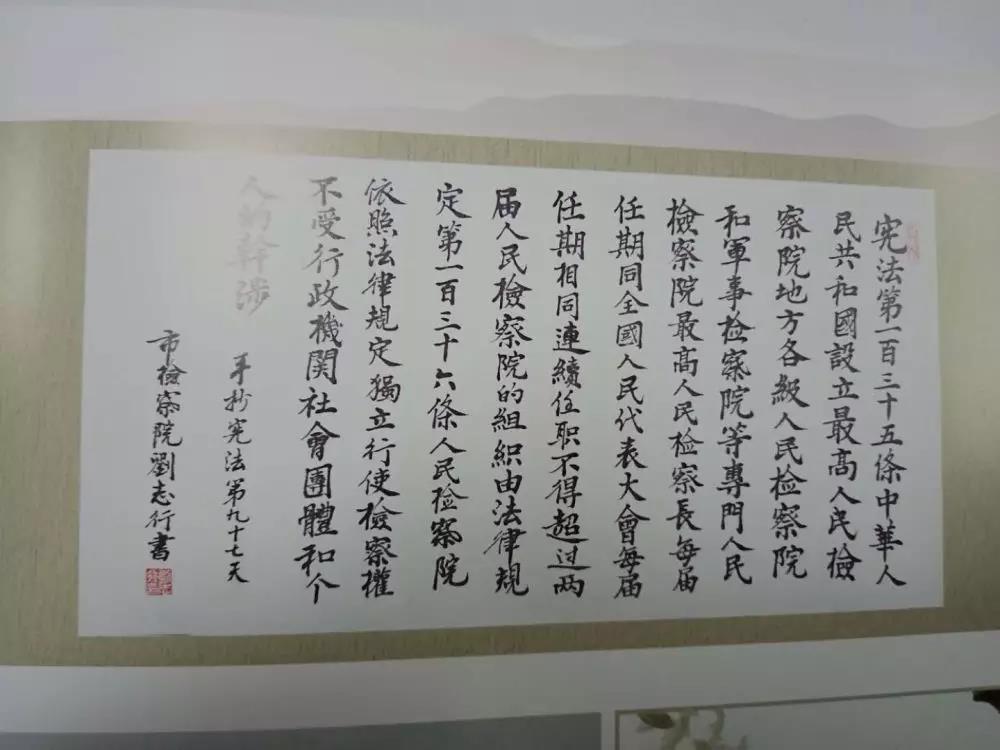 宪法第一百三十五條中華人
民共和國設立最高人民檢
察院地方各級人民检察院
和軍事检察院等專門人民
檢察院最高人民检察長每届
任期同全國人民代表大會每届
任期相同連續任职不得超过两
届人民檢察院的組織由法律規
定第一百三十六條人民检察院
依照法律規定獨立行使檢察權
不受行政機関社會團體和个
人的幹涉
手抄宪法第九十七天
市檢察院劉志行書